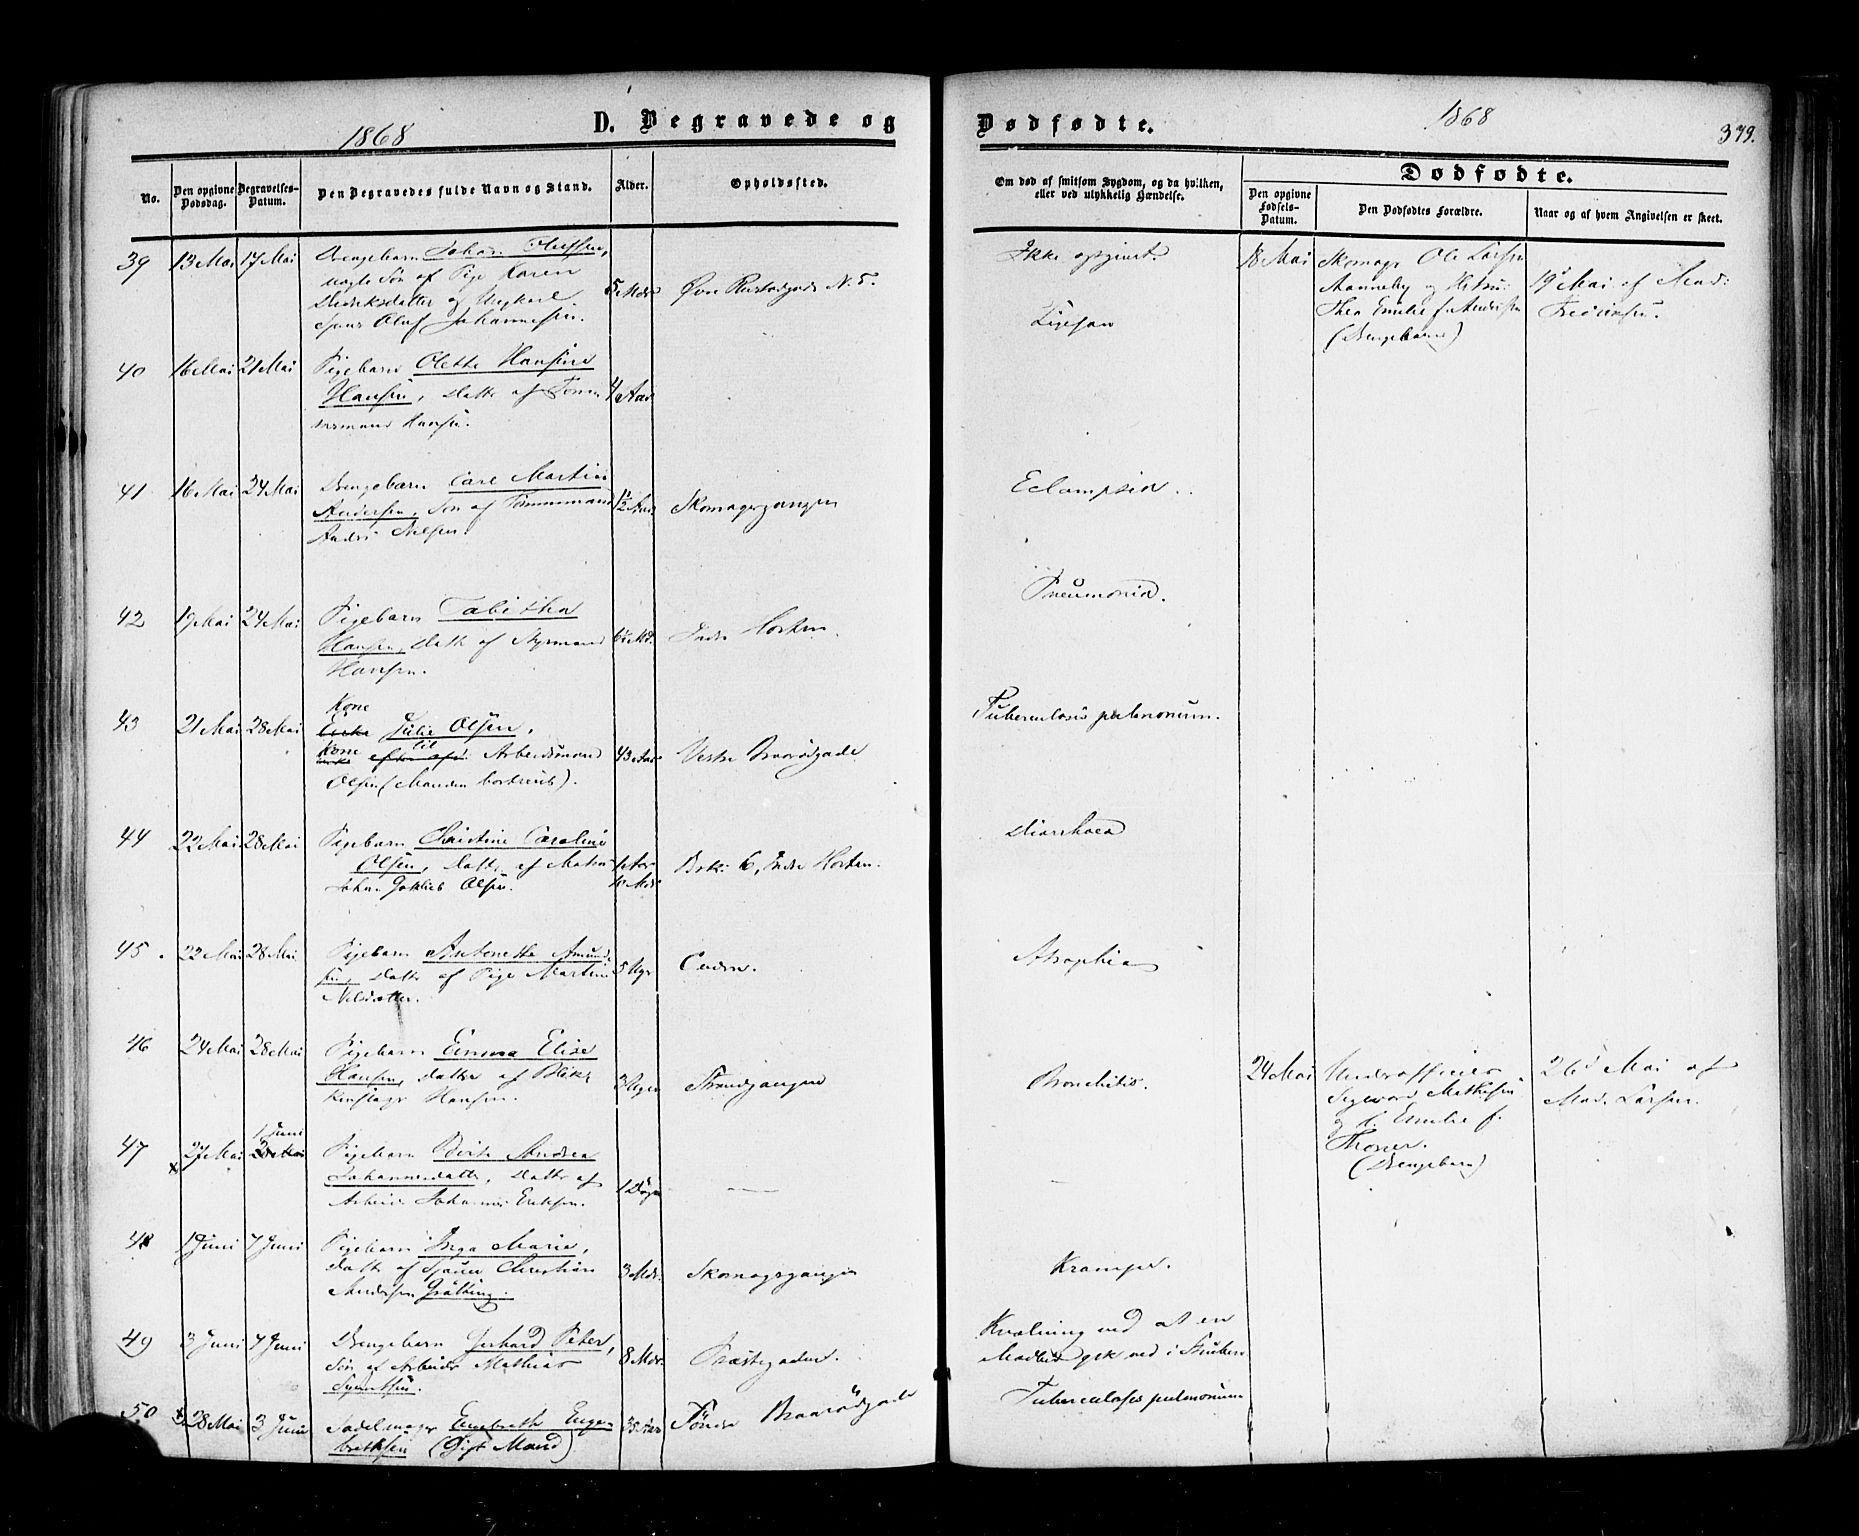 1868
D. Begravede og
No.
Den opgivne Dødsdag.
Begravelses-Datum.
Den Begravedes fulde Navn og Stand.
Alder.
Opholdssted.
39 13 Mai 17 Mai Drengebarn Johan Olufsen,
uægte Søn af Pige Karen
Didriksdatter og Ungkarl
Olaf Johannesen.
5 Mdr Øvre N. 5.
40 16 Mai 21 Mai Pigebarn Olette Hansine
Hansen, Datter af Tøm-
mermand Hansen.
4 Aar
41 16 Mai 24 Mai Drengebarn Carl Martin
Andersen, Søn af Tømmermand
Anders Nielsen.
Skomagergangen
42 19 Mai 24 Mai Pigebarn Tabitha
Hansen, Datter af Styrmand
Hansen.
Indre Horten.
43 21 Mai 28 Mai Kone
Julie Olsen,
Kone til Arbeidsmand
Olsen (Manden bortreist).
43 Aar Vestre Braarødgade
44 22 Mai 28 Mai Pigebarn Christine Caroline
Olsen, Datter af Matros
Johan Gotlieb Olsen.
1 Aar
10 Mdr
6, Indre Horten.
45 22 Mai 28 Mai Pigebarn Antonette Amund-
sen, Datter af Pige Martine
Nilsdatter.
5 Uger
46 24 Mai 28 Mai Pigebarn Emma Elise
Hansen, Datter af Blik-
kenslager Hansen.
3 Uger Strandgangen
1 Juni
47 27 Mai Pigebarn Berte Andrea
Johannesdatter, Datter af
Arbeider Johannes Eriksen.
1 Døgn —
48 1 Juni 7 Juni Pigebarn Inga Marie,
Datter af Christian
Andersen Grøtting.
3 Mdr. Skomagergangen
49 3 Juni 7 Juni Drengebarn Gerhard Peter,
Søn af Arbeider Mathias
Syvertsen.
8 Mdr. Præstegaden.
50 28 Mai 3 Juni Sadelmager Engebreth Enge-
brethsen (Gift Mand)
35 Aar Søndre Braarødgade
Dødfødte.
1868
379.
Om død af smitsom Sygdom, og da hvilken,
eller ved ulykkelig Hændelse.
Dødfødte.
Den opgivne Fødsels-Datum.
Den Dødfødtes Forældre.
Naar og af hvem Angivelsen er skeet.
Ikke opgivet.
Ligesaa
18 Mai Skomager Ole Larsen
Manneby og Hustru
Thea Emilie f. Andersen
(Drengebarn)
19 Mai af Mad:
Fredriksen.
Eclampsia.
Pneumonia.
Tuberculosis pulmonum.
Diarrhoea
Atrophia
Bronchitis.
24 Mai Underofficier
Sigvard Mathisen
og h. Emilie f.
Thoner.
(Drengebarn)
26 Mai af
Mad. Larsen.
Krampe.
Kvælning ved at en
Madbid gik ned i Struben
Tuberculosis pulmonum